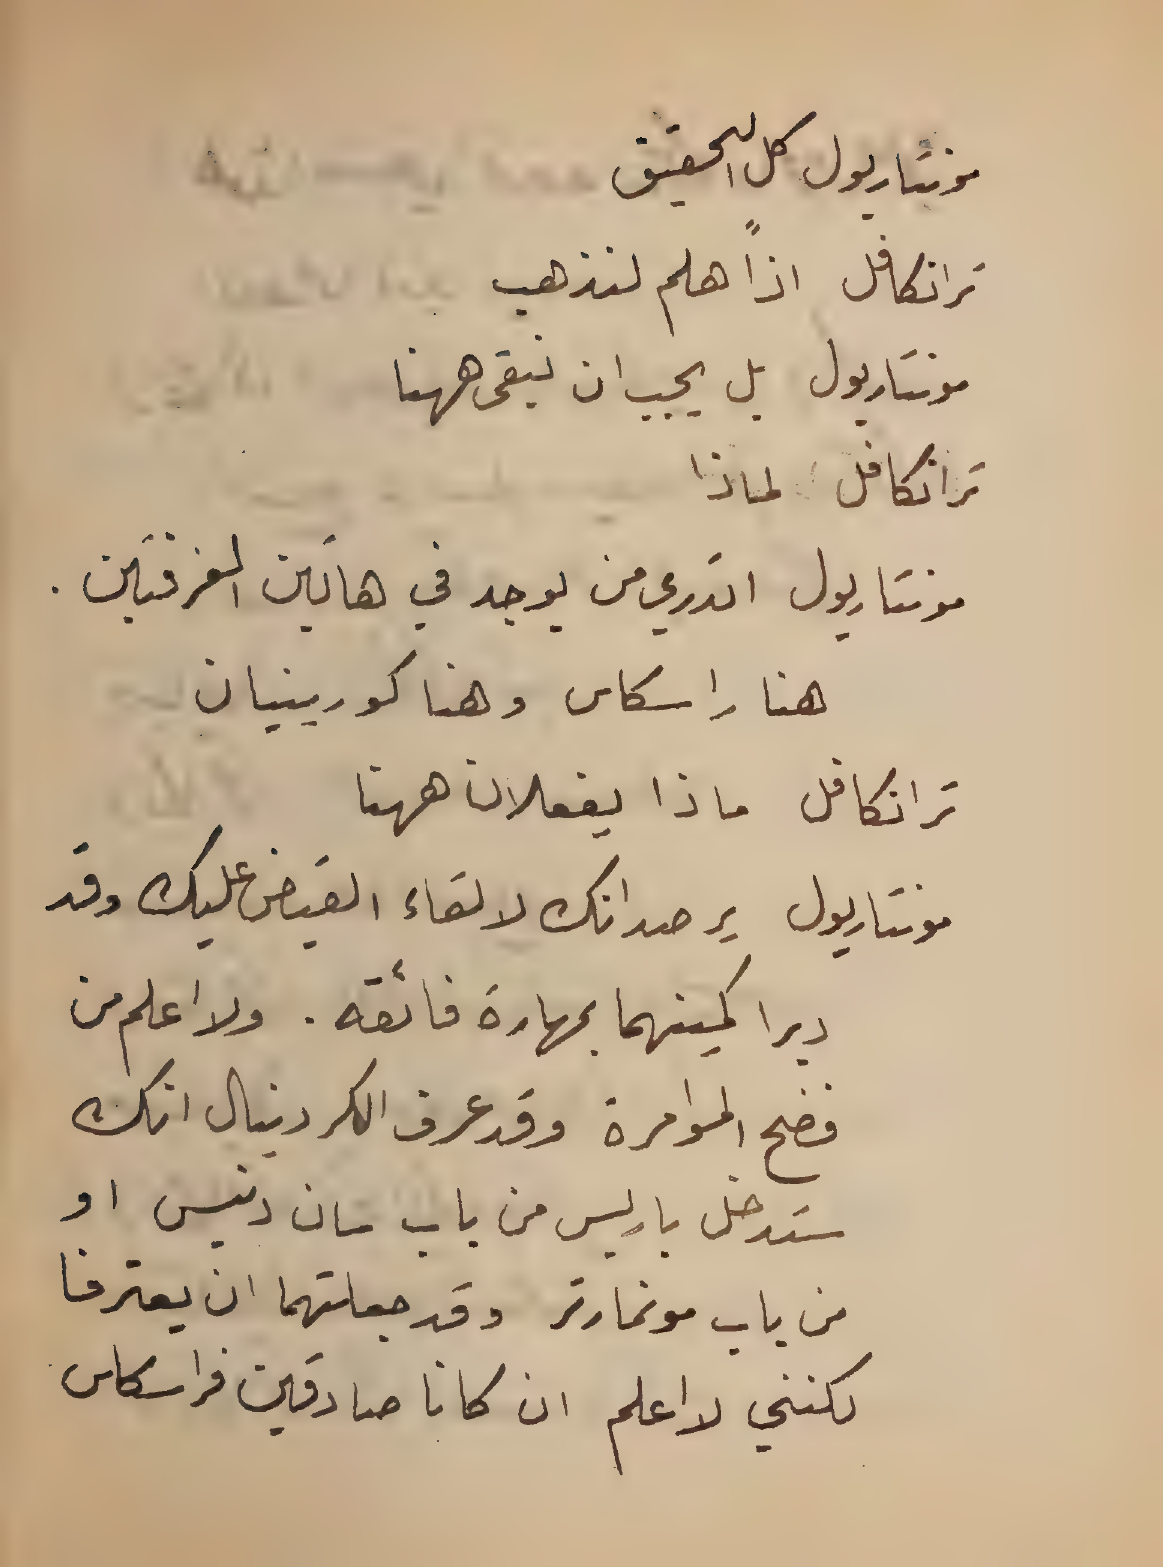 مونتاريول كل التحقيق
ترانكافل اذاً هلم لنذهب
مونتاريول بل يجب ان نبقى ههنا
ترانكافل لماذا
مونتاريول اتدري من يوجد في هاتين الغرفتين .
هنا راسكاس وهنا كورينيان
ترانكافل ماذا يفعلان ههنا
مونتاريول يرصدانك لالقاء القبض عليك وقد
دبرا كمينهما بمهارة فائقه . ولا اعلم من
فضح الموامرة وقد عرف الكردينال انك
ستدخل باريس من باب سان دنيس او
من باب مونمارتر وقد جعلتهما ان يعترفا
لكنني لا اعلم ان كانا صادقين فراسكاس